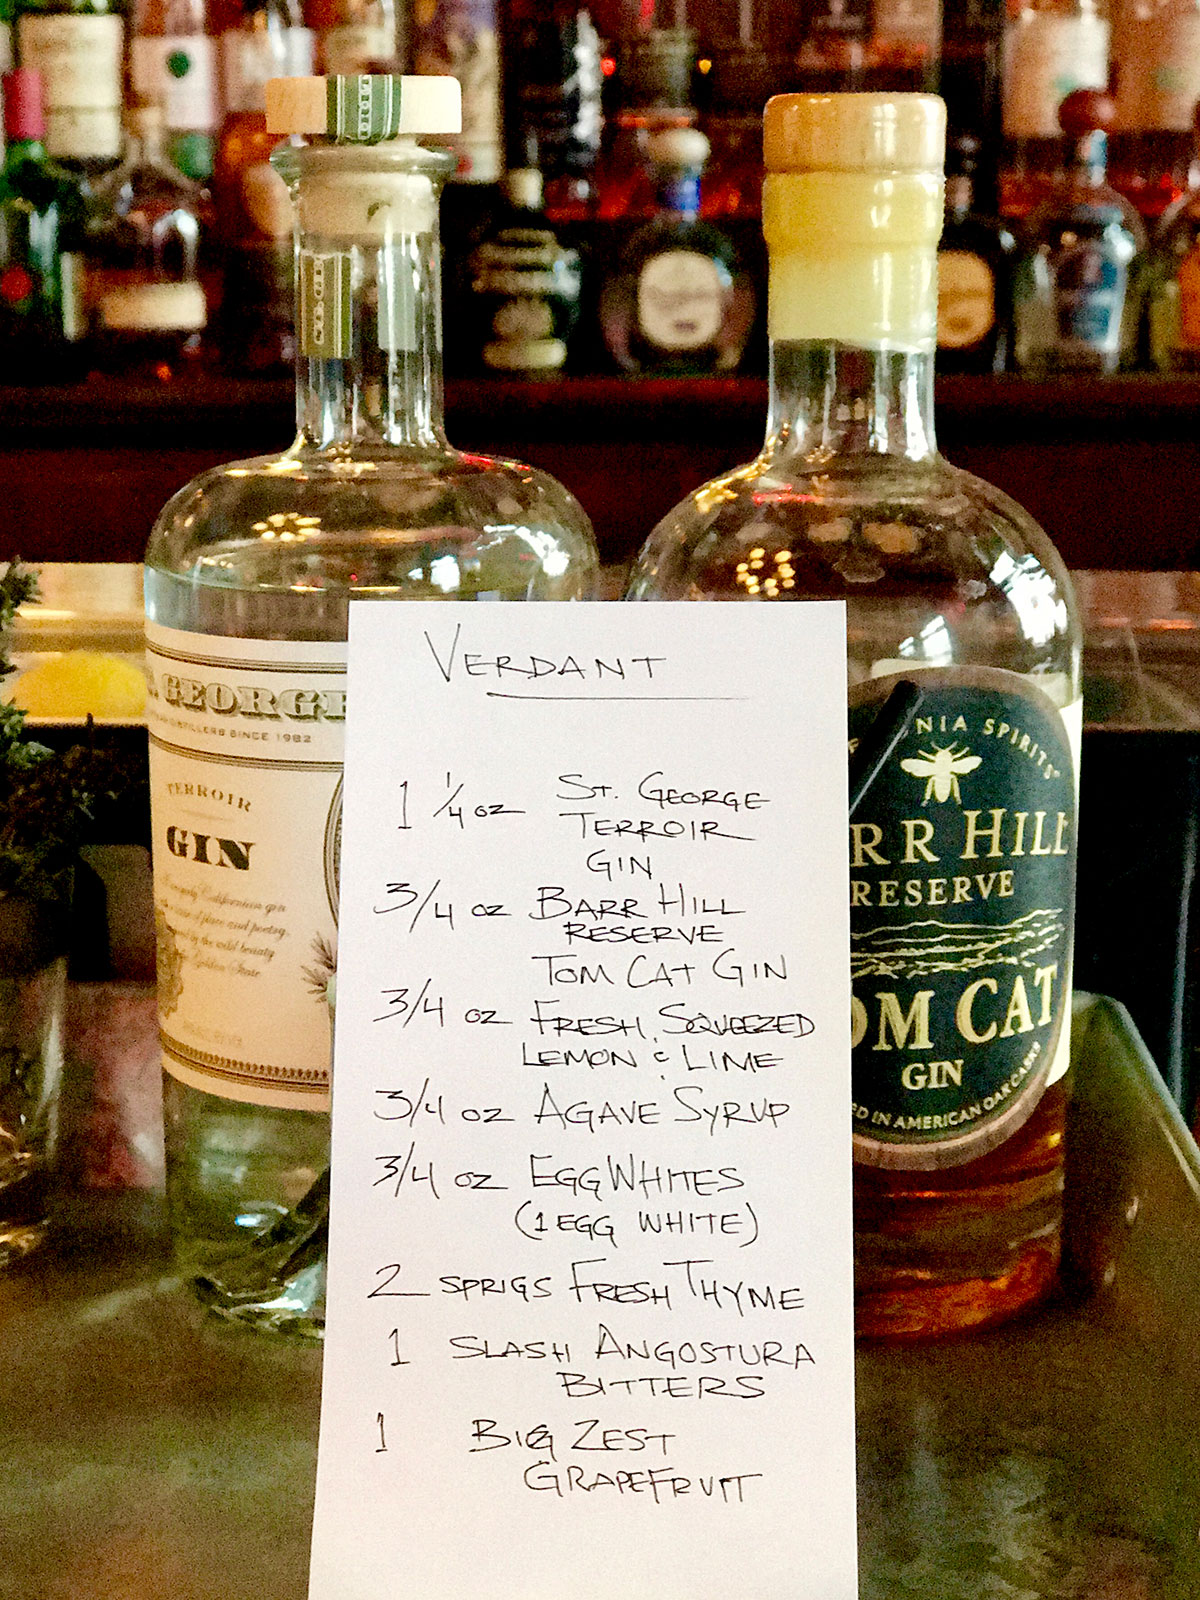 VERDANT
1 1/4 oz ST. GEORGE
TERROIR
GIN
3/4 oz BARR HILL
RESERVE
TOM CAT GIN
3/4 oz FRESH SQUEEZED
LEMON & LIME
3/4 oz AGAVE SYRUP
3/4 oz EGG WHITES
(1 EGG WHITE)
2 SPRIGS FRESH THYME
1 SLASH ANGOSTURA
BITTERS
1 BIG ZEST
GRAPEFRUIT
GEORGE
DISTILLERS SINCE 1982
TERROIR
GIN
SPIRITS
HILL
RESERVE
CAT
GIN
IN AMERICAN OAK CASKS